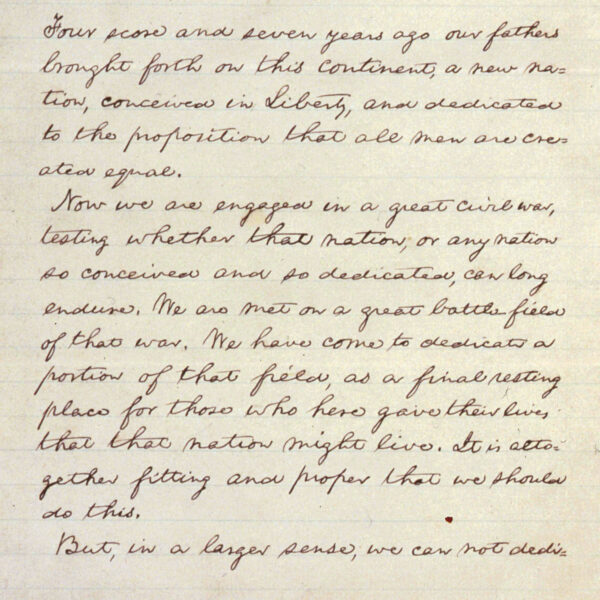 Four score and seven years ago our fathers
brought forth on this continent, a new na=
tion, conceived in Liberty, and dedicated
to the proposition that all men are cre=
ated equal.
Now we are engaged in a great civil war,
testing whether that nation, or any nation
so conceived and so dedicated, can long
endure. We are met on a great battle-field
of that war. We have come to dedicate a
portion of that field, as a final resting
place for those who here gave their lives
that that nation might live. It is alto=
gether fitting and proper that we should
do this.
But, in a larger sense, we can not dedi=